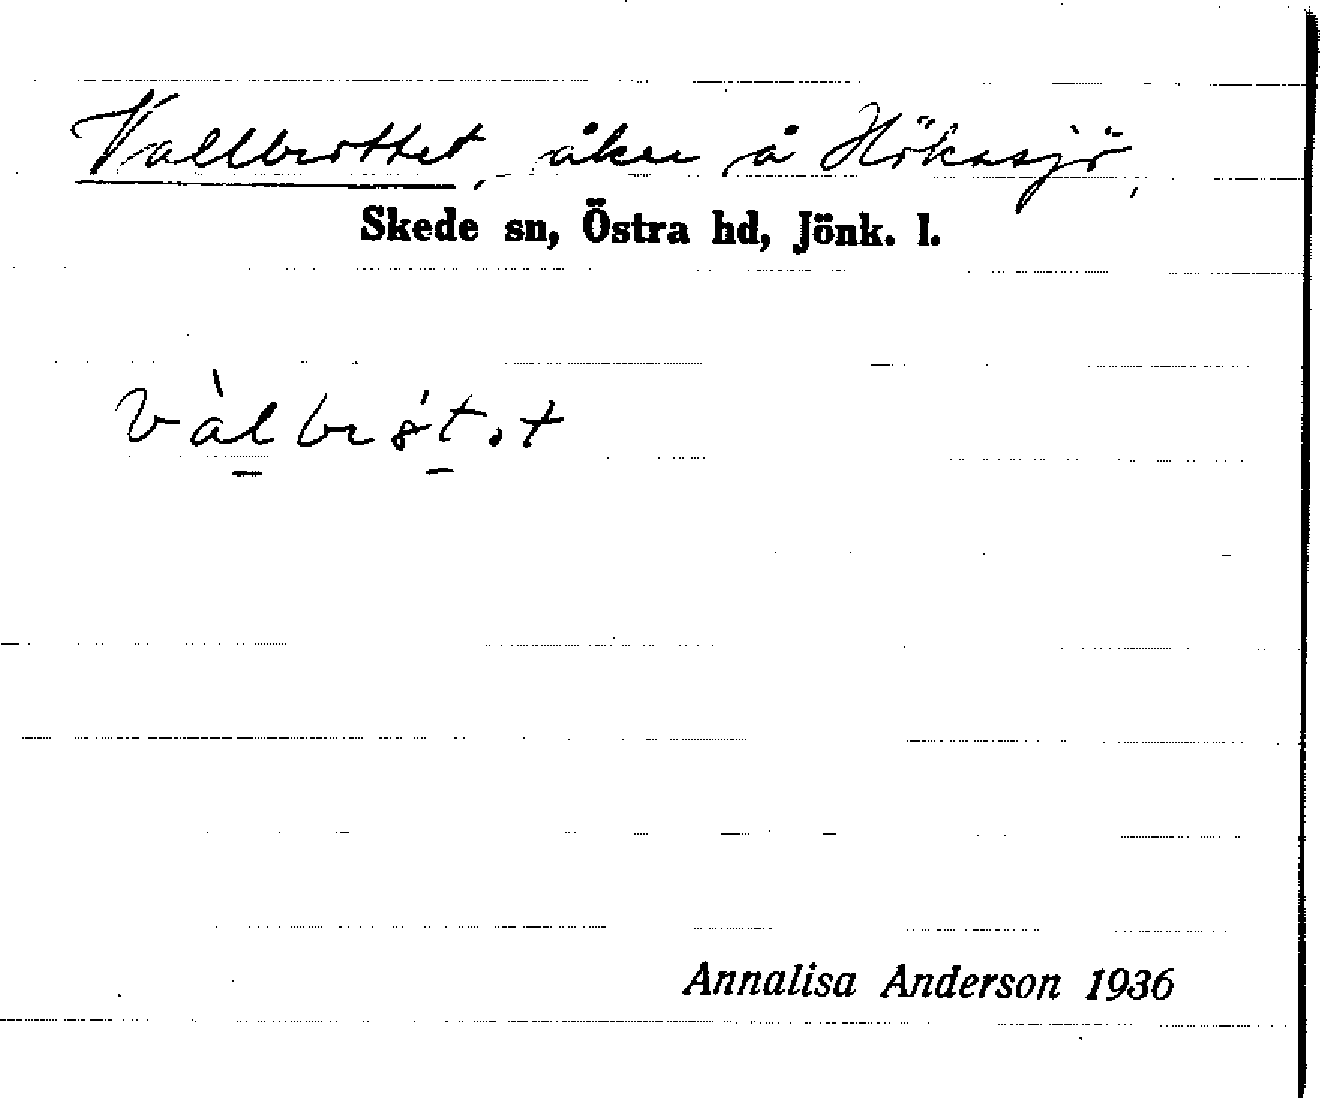 Vallbrottet, åker å Hökasjö,
Skede sn, Östra hd, Jönk. l.
vàlbrót.t
Annalisa Anderson 1936